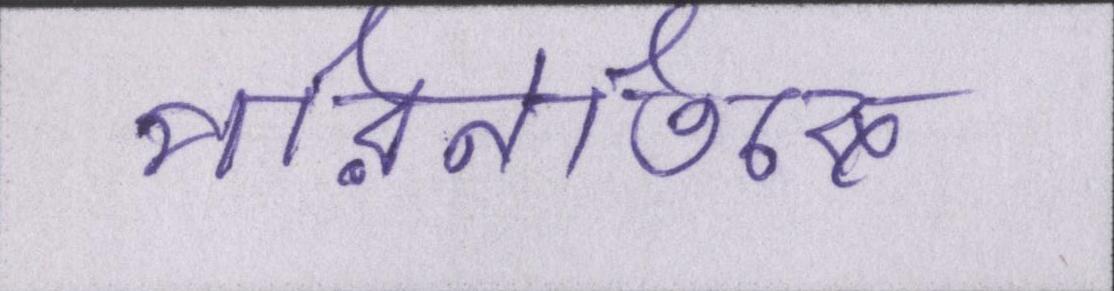 পরিনতিকে